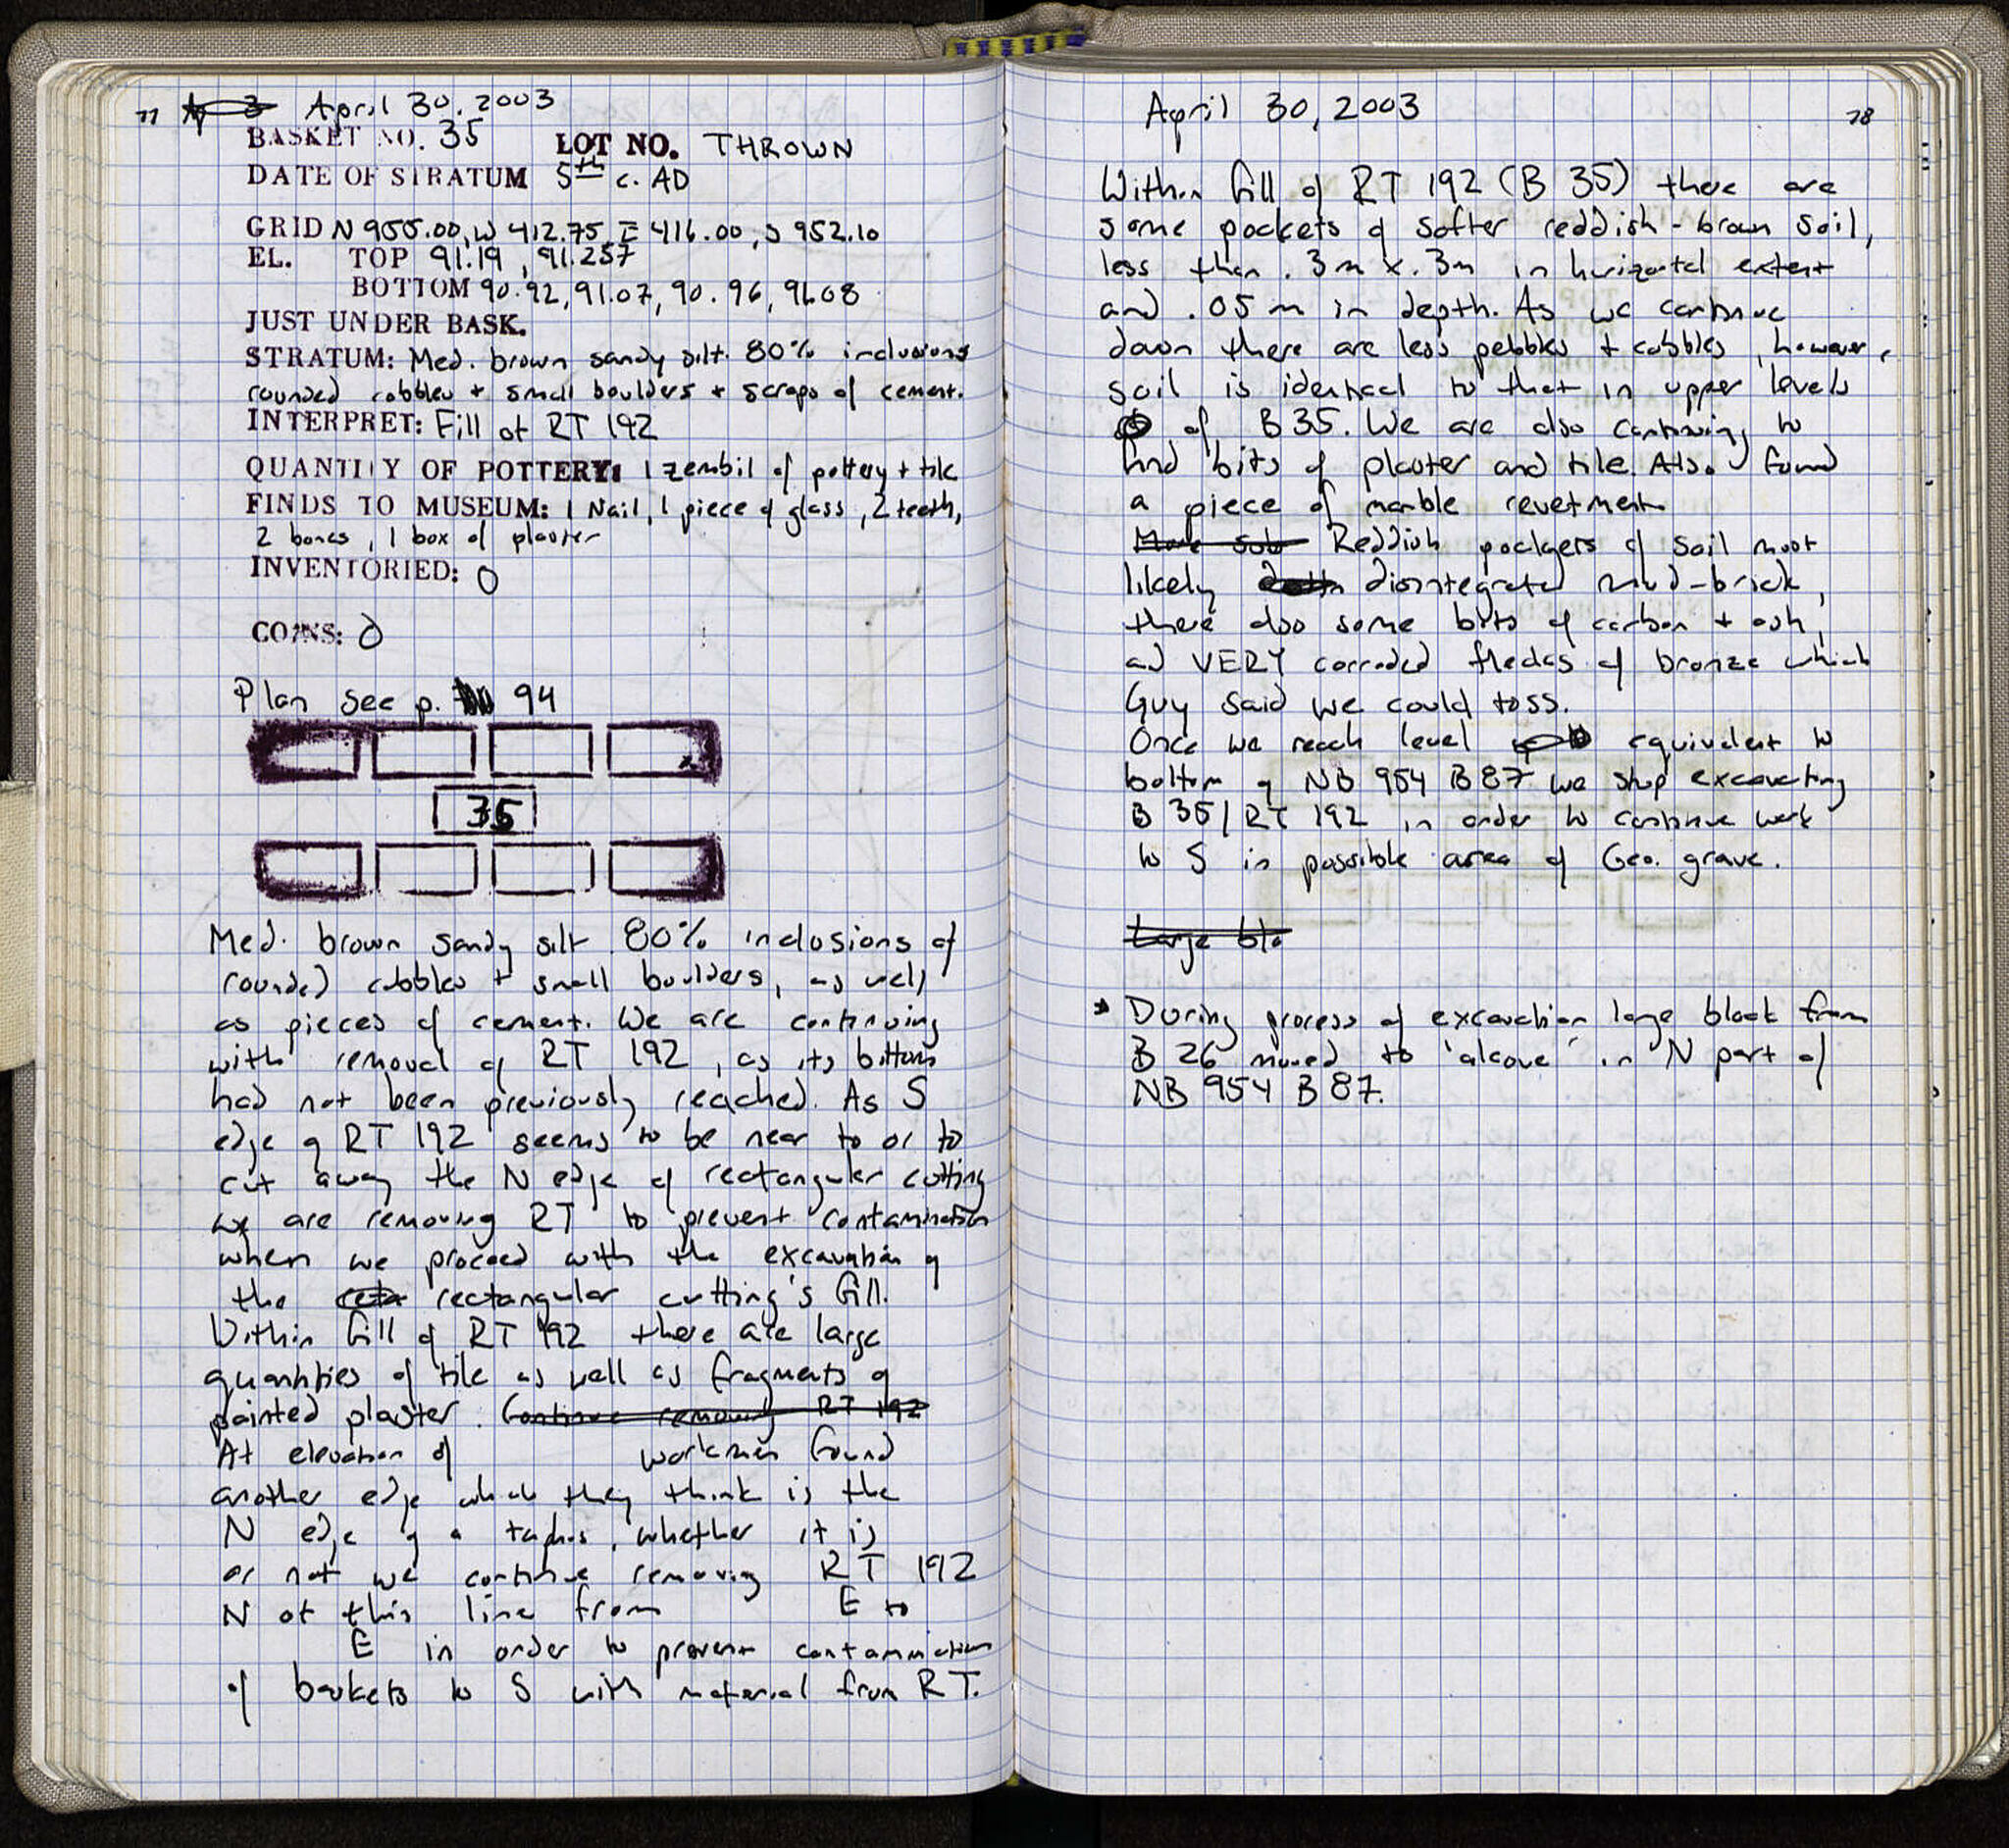 77 April 30, 2003
BASKET NO. 35 LOT NO. THROWN
DATE OF STRATUM 5th c. AD
GRID N 955.00, W 412.75, E 416.00, S 952.10
EL. TOP 91.19, 91.257
BOTTOM 90.92, 91.07, 90.96, 91.08
JUST UNDER BASK.
STRATUM: Med. brown sandy silt. 80% inclusions
rounded cobbles + small boulders + scraps of cement.
INTERPRET: Fill of RT 192
QUANTITY OF POTTERY: 1 zembil of pottery + tile
FINDS TO MUSEUM: 1 Nail, 1 piece of glass, 2 teeth,
2 bones, 1 box of plaster
INVENTORIED: 0
COINS: 0
Plan see p. 94
35
Med. brown sandy silt. 80% inclusions of
rounded cobbles + small boulders, as well
as pieces of cement. We are continuing
with removal of RT 192, as its bottom
had not been previously reached. As S
edge of RT 192 seems to be near to or to
cut away the N edge of rectangular cutting
we are removing RT to prevent contamination
when we proceed with the excavation of
the rectangular cutting's fill.
Within fill of RT 192 there are large
quantities of tile as well as fragments of
painted plaster. Continue removing RT 192
At elevation of workmen found
another edge which they think is the
N edge of a taphos, whether it is
or not we continue removing RT 192
N of this line from E to
E in order to prevent contamination
of baskets to S with material from RT.
April 30, 2003 78
Within fill of RT 192 (B 35) there are
some pockets of softer reddish-brown soil,
less than .3m x .3m in horizontal extent
and .05 m in depth. As we continue
down there are less pebbles + cobbles, however,
soil is identical to that in upper levels
of B35. We are also continuing to
find bits of plaster and tile. Also found
a piece of marble revetment
Reddish pockets of soil most
likely disintegrated mud-brick,
there also some bits of carbon + ash,
and VERY corroded flecks of bronze which
Guy said we could toss.
Once we reach level equivalent to
bottom of NB 954 B87 we stop excavating
B 35/RT 192 in order to continue work
to S in possible area of Geo. grave.
Large blo
* During process of excavation large block from
B 26 moved to 'alcove' in N part of
NB 954 B 87.